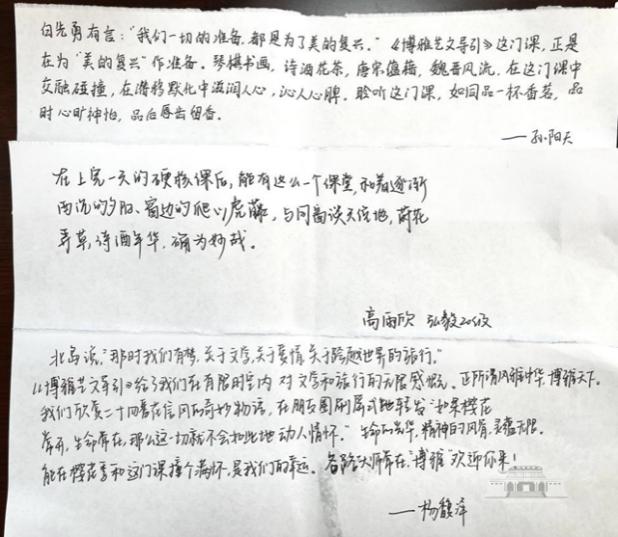 白先勇有言:“我们一切的准备,都是为了美的复兴。”《博雅艺文导引》这门课,正是
在为“美的复兴”作准备。琴棋书画,诗酒花茶,唐宋蕴藉,魏晋风流,在这门课中
交融碰撞,在潜移默化中滋润人心,沁人心脾。聆听这门课,如同品一杯香茗,品
时心旷神怡,品后唇齿留香。
——孙阳天
在上完一天的硬核课后,能有这么一个课堂,和着逐渐
西沉的夕阳、窗边的爬山虎藤,与同窗谈天说地,荷花
弄草,诗酒年华,确为妙哉。
高雨欣 弘毅20级
北岛说,“那时我们有梦,关于文学,关于爱情,关于跨越世界的旅行。”
《博雅艺文导引》给了我们在有限时空内对文学和旅行的无限感慨。正所谓风雅中华,博雅天下。
我们欣赏二十四番花信风的奇妙物语,在朋友圈刷屏式地转发“如果樱花
常开,生命常在,那么这一切就不会如此地动人情怀。”生命的光华,精神的风骨,灵蕴无限。
能在樱花季和这门课撞个满怀,是我们的幸运。各路大师常在,“博雅”欢迎你来!
——杨馥泽